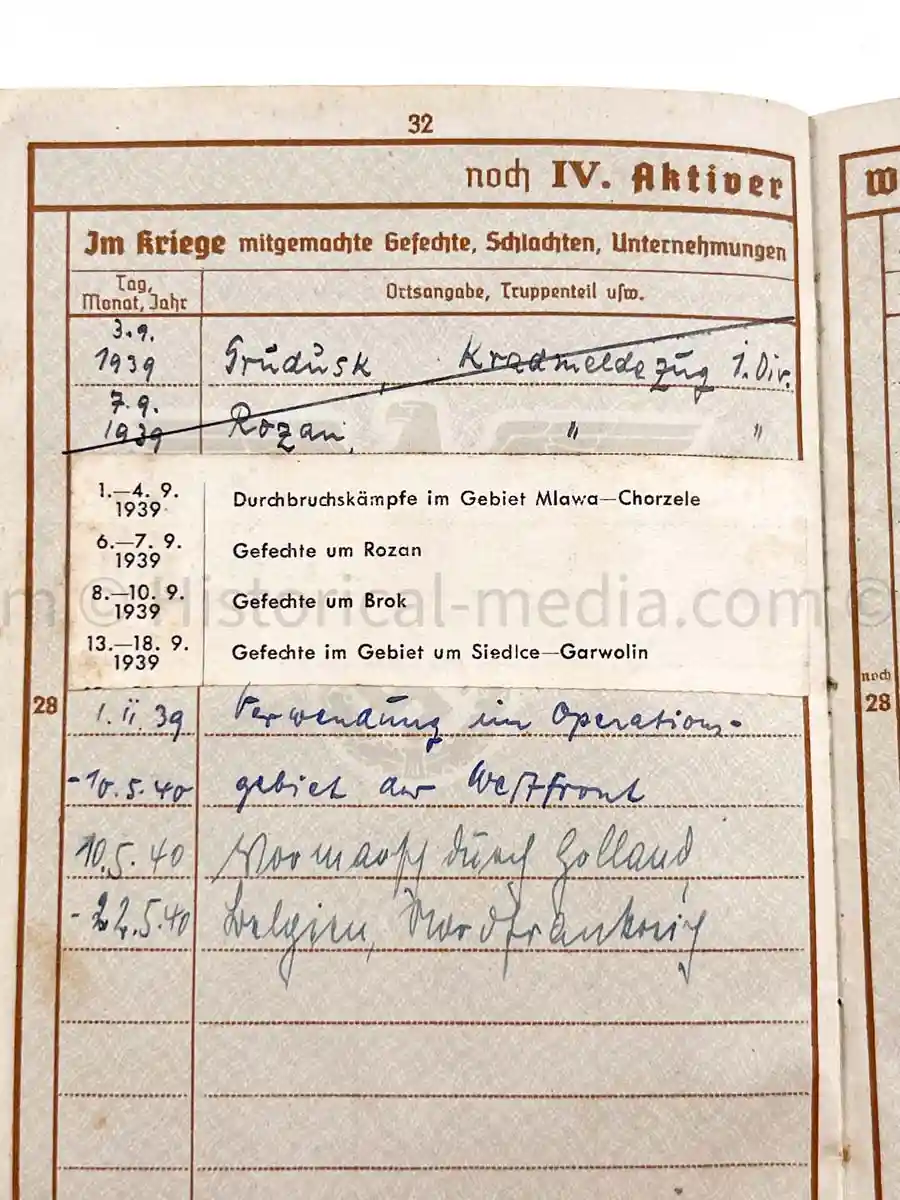 32
noch IV. Aktiver
Im Kriege mitgemachte Gefechte, Schlachten, Unternehmungen
Tag, Monat, Jahr
Ortsangabe, Truppenteil usw.
3.9. 1939 Grudusk, Kradmeldezug 1. Div.
7.9. 1939 Rozan, " "
1.—4. 9. 1939 Durchbruchskämpfe im Gebiet Mlawa—Chorzele
6.—7. 9. 1939 Gefechte um Rozan
8.—10. 9. 1939 Gefechte um Brok
13.—18. 9. 1939 Gefechte im Gebiet um Siedlce—Garwolin
28 1. 11. 39 Verwendung im Operations-
-10.5.40 gebiet der Westfront
10.5.40 Vormarsch durch Holland,
-22.5.40 Belgien, Nordfrankreich
W
noch
28
m © Historical-media.com ©